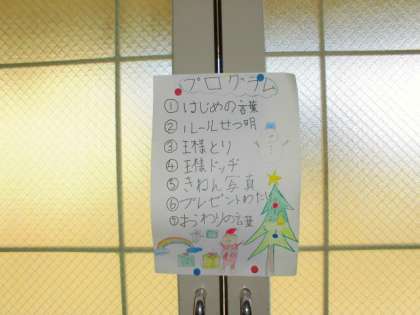 プログラム
①はじめの言葉
②ルールせつ明
③王様とり
④王様ドッヂ
⑤きねん写真
⑥プレゼントわたし
⑦おわりの言葉